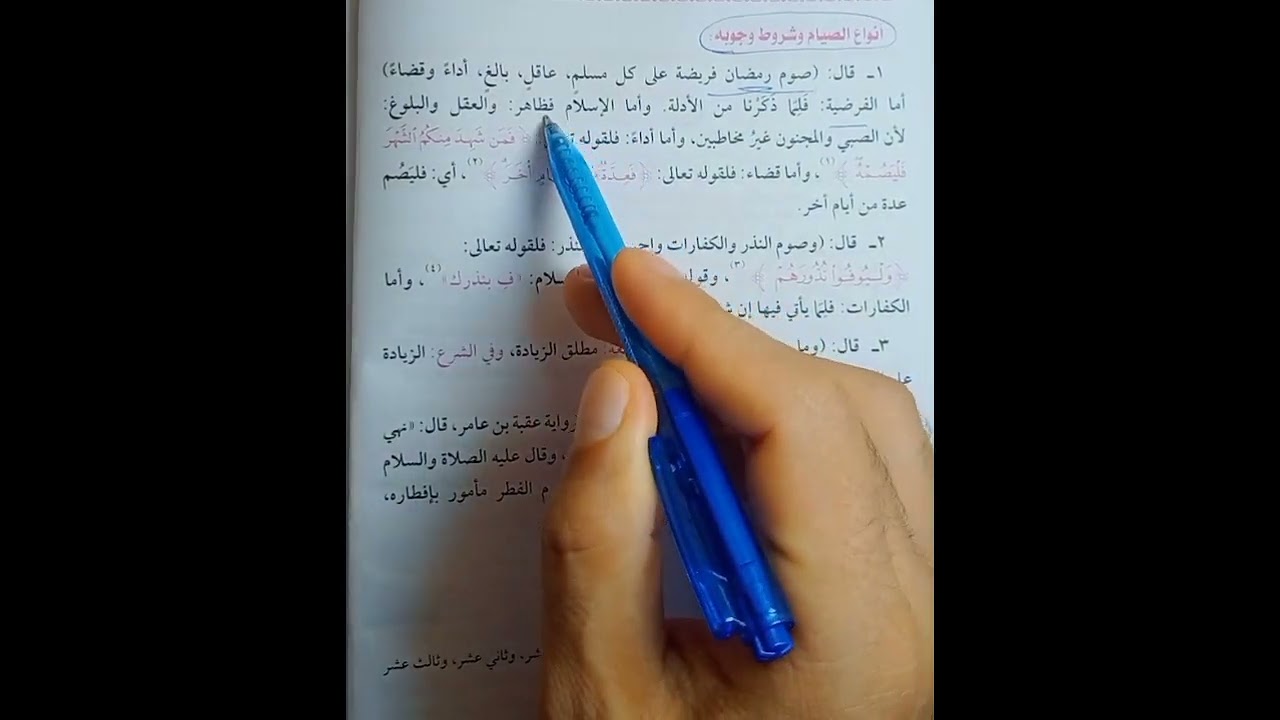 أنواع الصيام وشروط وجوبه:
١ـ قال: (صوم رمضان فريضة على كل مسلمٍ، عاقلٍ، بالغٍ، أداءً وقضاءً)
أما الفرضية: فَلِمَا ذَكَرْنا من الأدلة. وأما الإسلام فظاهر: والعقل والبلوغ:
لأن الصبي والمجنون غيرُ مخاطبين، وأما أداءً: فلقوله ﴿ فَمَن شَهِدَ مِنكُمُ ٱلشَّهْرَ
فَلْيَصُمْهُ ﴾(١)، وأما قضاء: فلقوله تعالى: ﴿ فَعِدَّةٌ أُخَرَ ﴾(٢)، أي: فليَصُم
عدة من أيام أخر.
٢ـ قال: (وصوم النذر والكفارات النذر: فلقوله تعالى:
﴿ وَلْيُوفُوا۟ نُذُورَهُمْ ﴾(٣)، «فِ بنذرك»(٤)، وأما
الكفارات: فلِمَا يأتي فيها إن
٣ـ قال: (وما مطلق الزيادة، وفي الشرع: الزيادة
رواية عقبة بن عامر، قال: «نهي
، وقال عليه الصلاة والسلام
الفطر مأمور بإفطاره،
، وثاني عشر، وثالث عشر